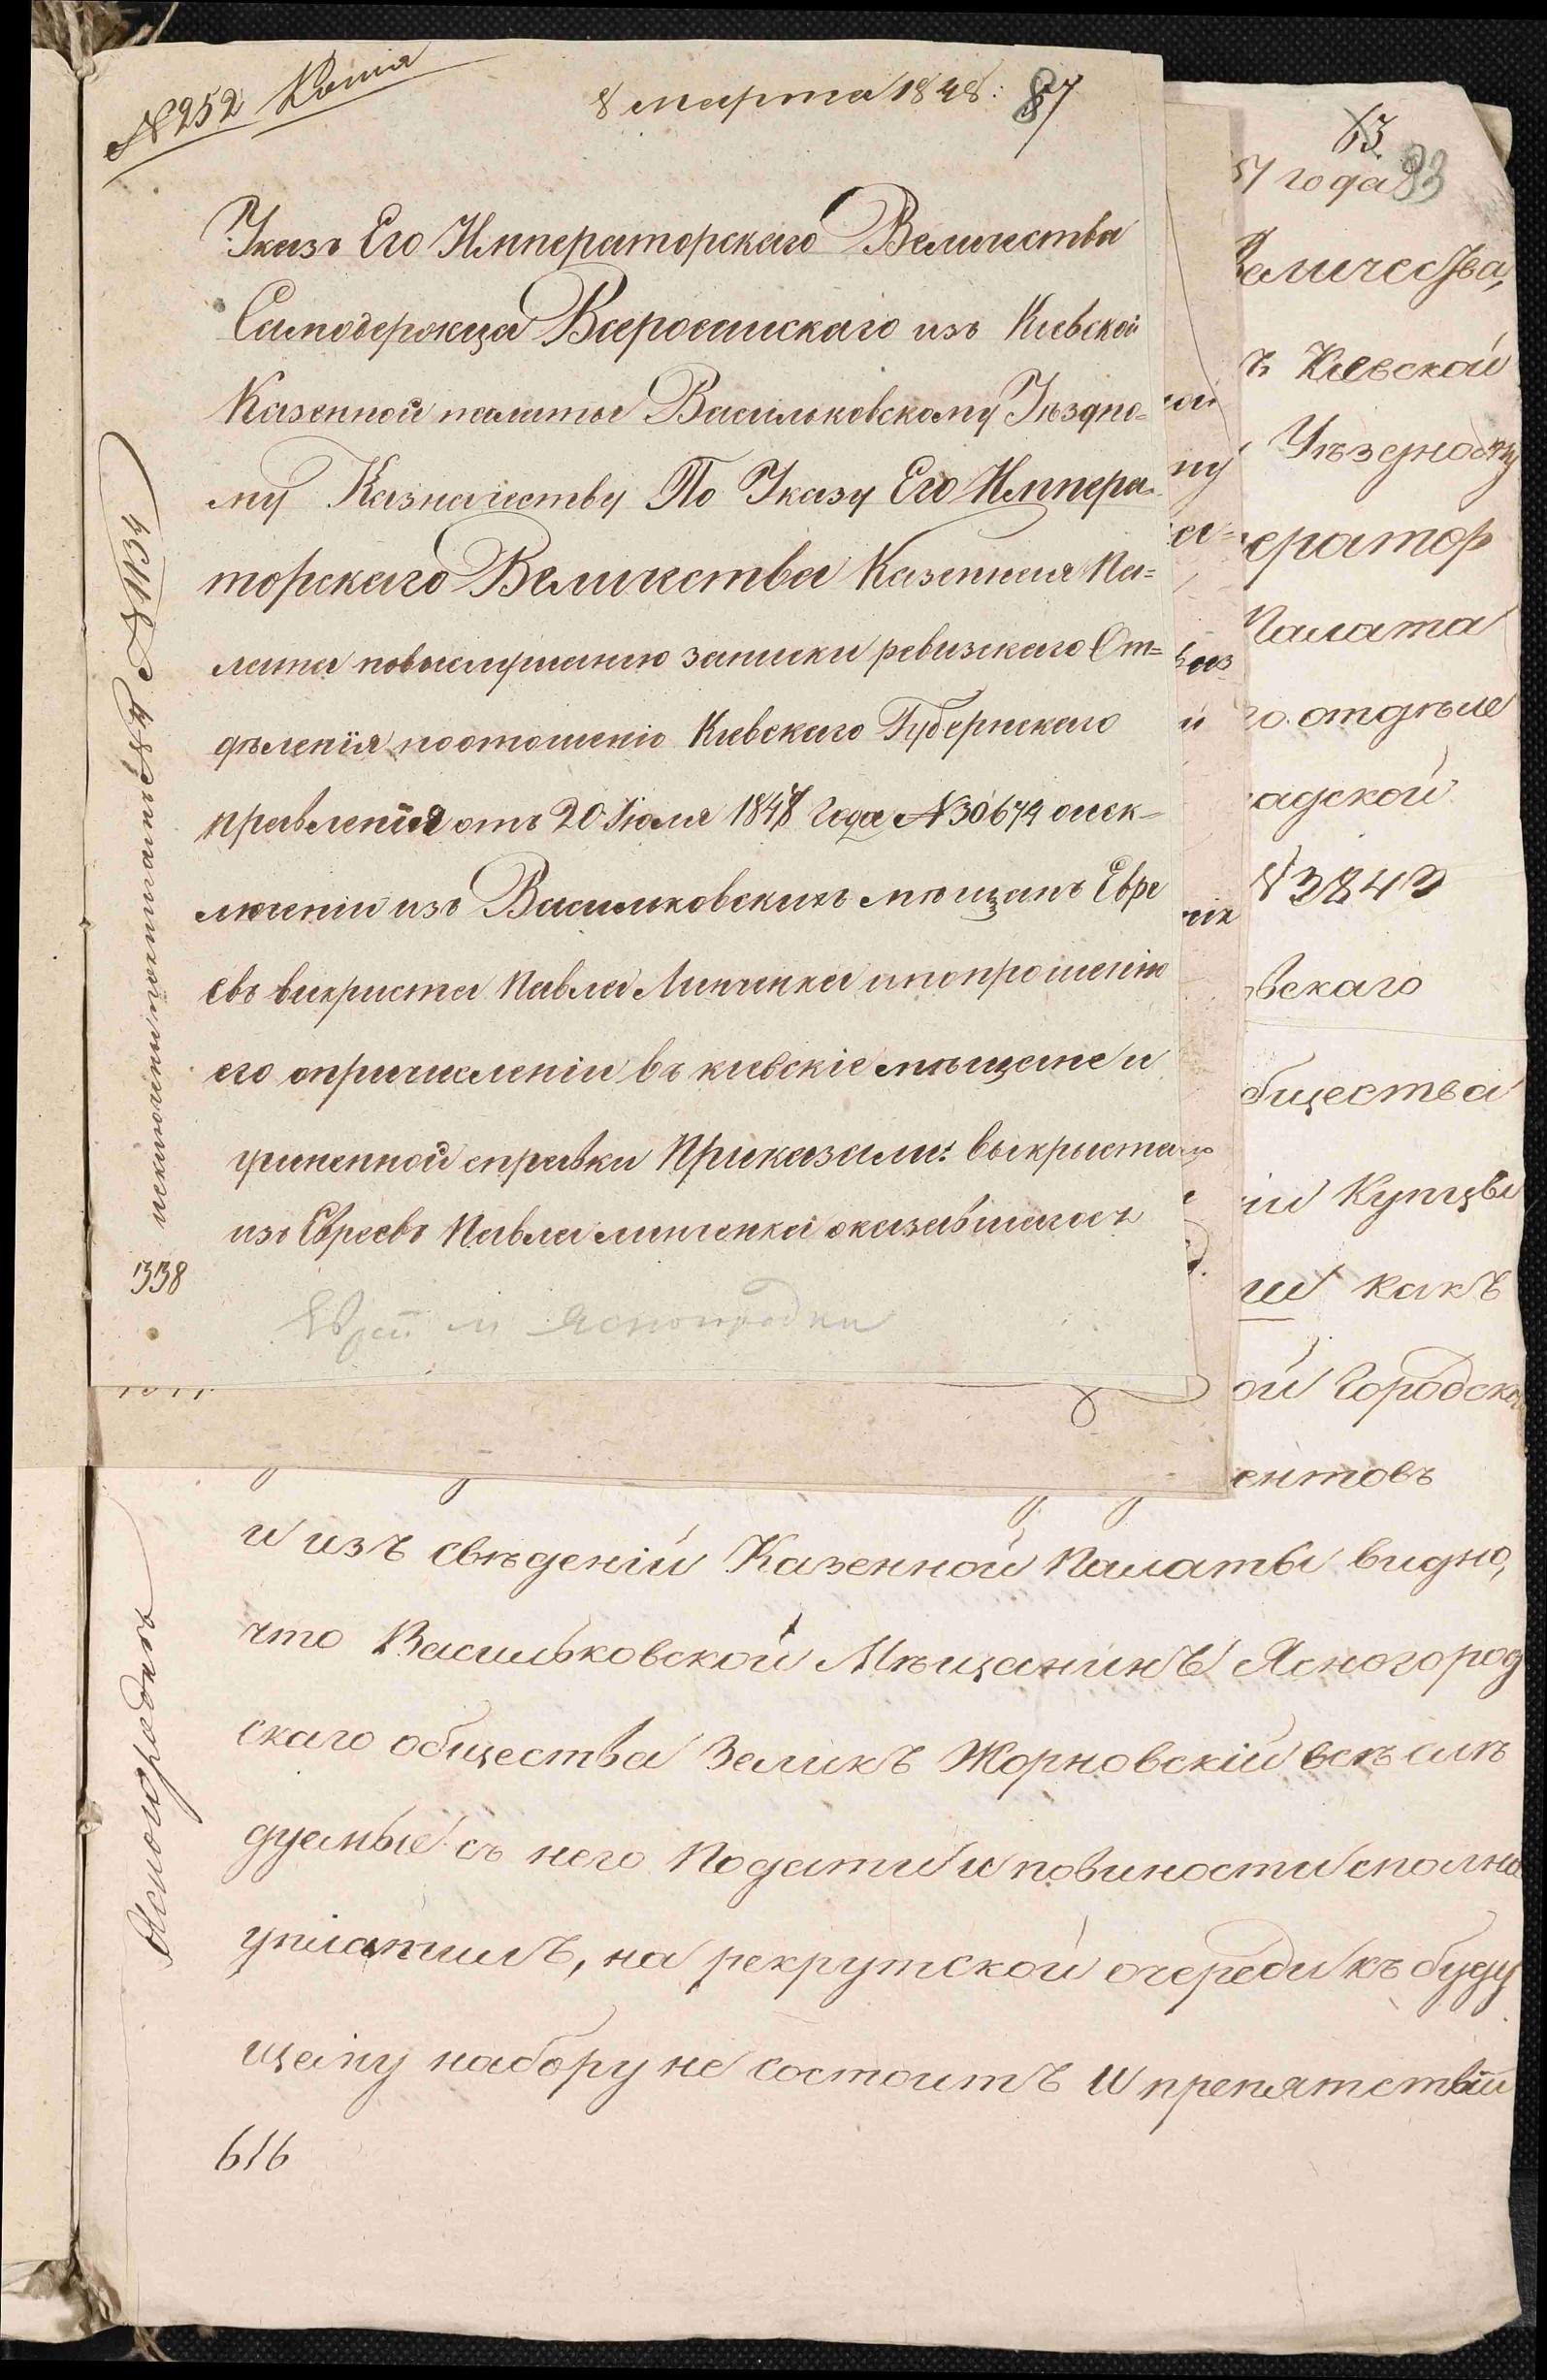 № 252 Копія
8 марта 1848: 87
Указъ Его Императорскаго Величества
Самодержца Всероссийскаго изъ Киевской
Казенной палаты Васильковскому Уѣздно=
му Казначеству По Указу Его Импера
торскаго Величества Казенная Па=
лата повыслушанию записки ревизскаго От=
дѣленія поотношенію Киевскаго Губернскаго
правленія отъ 20 Іюля 1847 года № 30674 оиск-
люченіи изъ Васильковскихъ мѣщанъ Евре
евъ викриста Павла Линченка ипопрошенію
его опричисленіи въ киевскіе мѣщане и
учиненной справки Приказали: выкриста
изъ Евреевъ Павла линченка оказавшагося
Еврей м Ясногородки
338
№ 1134
63
83
57 года
Величества,
ъ Киевской
Уѣздному
ператор
Палата
го отдѣле
адской
№ 3843
овскаго
общества
ии Купцы
ши какъ
ой Городской
ентовъ
и изъ свѣденій Казенной Палаты видно,
что Васильковской Мѣщанинъ Ясногород
скаго общества Зеликъ Жорновскій всѣ слѣ
дуемые съ него Подати и повиности сполна
уплатилъ, на рекрутской очереди къ буду
щему набору не состоитъ и препятствій
616
Ясногородкѣ